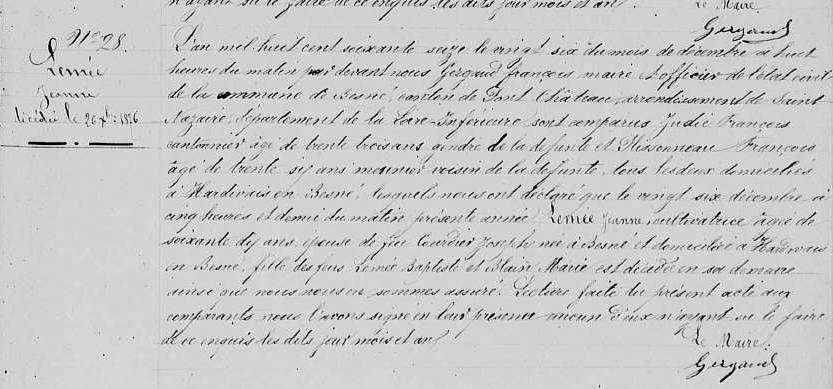 n'ayant su le faire de ce enquis les dits jour mois et an.
Le Maire
Gergaud
N° 28.
Lemée
Jeanne
décédée le 26 Xbre 1876
L'an mil huit cent soixante seize le vingt six du mois de décembre à huit
heures du matin par devant nous Gergaud François maire et officier de l'état civil
de la commune de Besné, canton de Pont Château, arrondissement de Saint
Nazaire, département de la Loire-Inférieure sont comparus Judic François
cantonnier âgé de trente trois ans gendre de la défunte et Plissonneau François
âgé de trente six ans meunier voisin de la défunte, tous les deux domiciliés
à Hardivais en Besné, lesquels nous ont déclaré que le vingt six décembre à
cinq heures et demie du matin présente année Lemée Jeanne, cultivatrice âgée de
soixante dix ans épouse de feu Courdier Joseph née à Besné et domiciliée à Hardivais
en Besné, fille des feus Lemée Baptiste et Blain Marie est décédée en sa demeure
ainsi que nous nous en sommes assuré. Lecture faite du présent acte aux
comparants nous l'avons signé en leur présence aucun d'eux n'ayant su le faire
de ce enquis les dits jour mois et an
Le Maire.
Gergaud